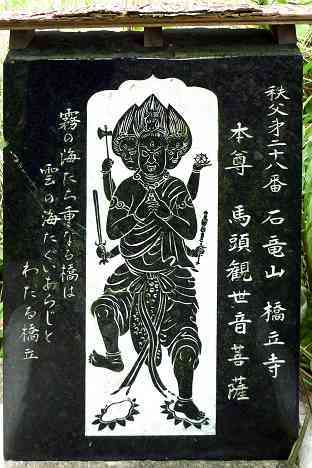 秩父第二十八番 石竜山 橋立寺
本尊 馬頭観世音菩薩
霧の海たち重なる橋は
雲の波たぐいあらじと
わたる橋立